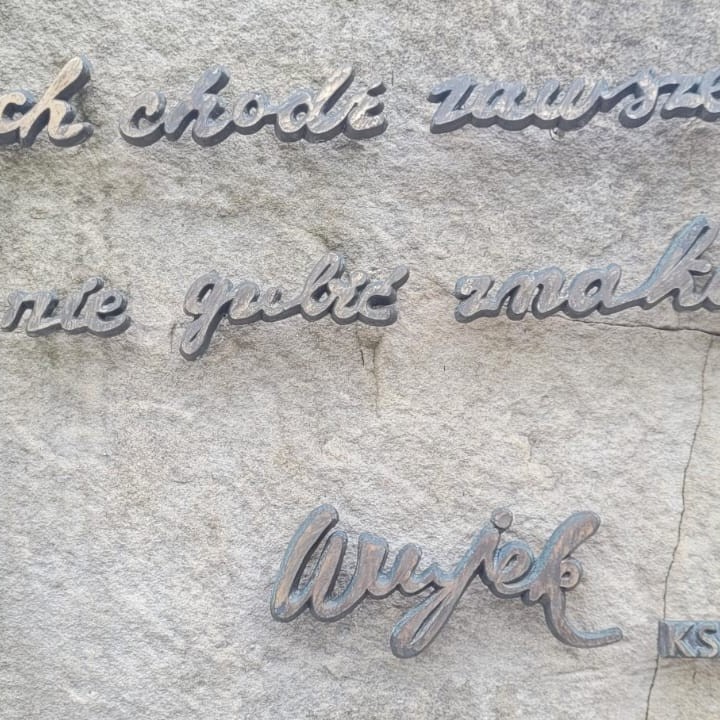 ch chodź zawsze
nie gubić znak
Wujek
KS